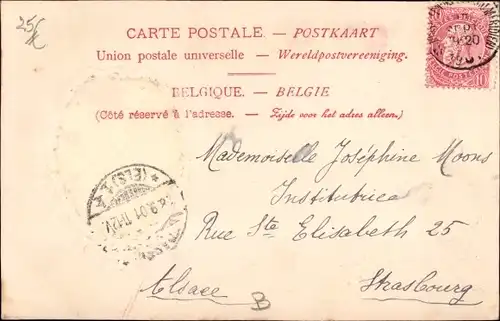 25
CARTE POSTALE. — POSTKAART
Union postale universelle. — Wereldpostvereeniging.
BELGIQUE. — BELGIE
(Côté réservé à l'adresse. — Zijde voor het adres alleen.)
Mademoiselle Joséphine Moons
Institutrice
Rue Ste Elisabeth 25
Alsace Strasbourg
(ELS)
8.9.01
10
B